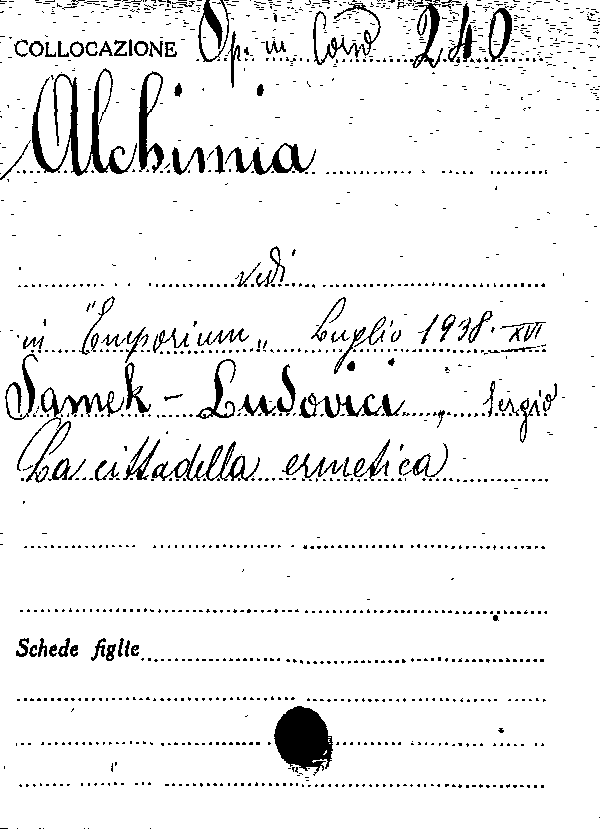 COLLOCAZIONE Op. in Corso 240
Alchimia
vedi
in "Emporium„ Luglio 1938-XVI
Samek - Ludovici, Sergio
La cittadella ermetica
Schede figlie